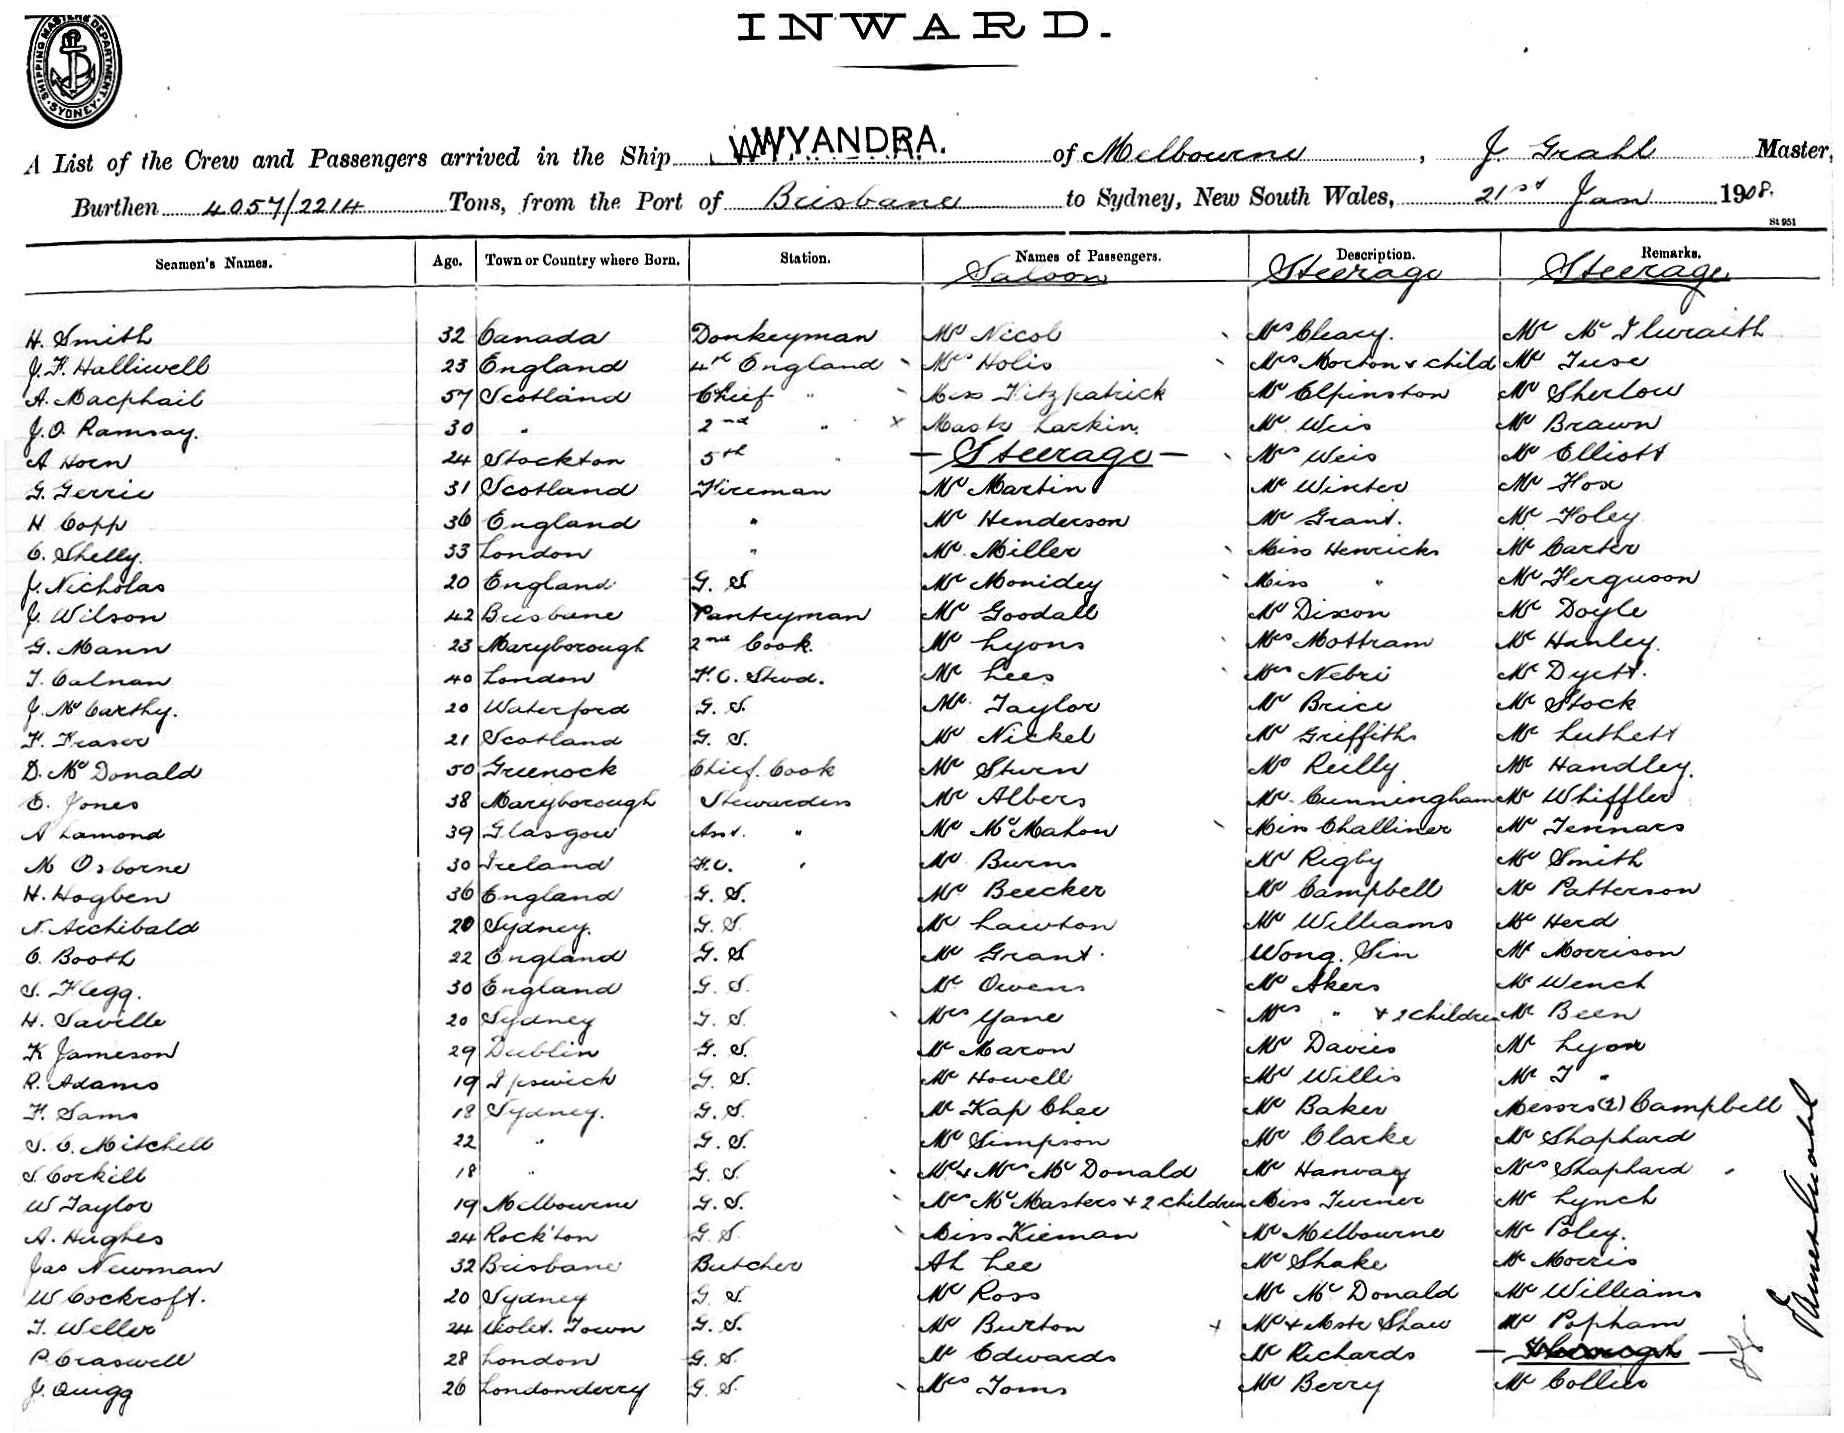 INWARD.
SHIPPING MASTERS DEPARTMENT. SYDNEY.
A List of the Crew and Passengers arrived in the Ship WYANDRA. of Melbourne, J. Grahl Master,
Burthen 4057/2214 Tons, from the Port of Brisbane to Sydney, New South Wales, 21st Jan 1908.
St 951
Seamen's Names. Age. Town or Country where Born. Station. Names of Passengers. Description. Remarks.
Saloon Steerage Steerage
H. Smith 32 Canada Donkeyman Mr Nicol Mrs Cleary. Mr Mc Ilwraith
J. F. Halliwell 23 England 4th England Mrs Holis Mrs Morton & child Mr Tuse
A. Macphail 57 Scotland Chief " Miss Fitzpatrick Mr Elpinston Mr Sherlow
J. O. Ramsay. 30 " 2nd " Mastr Larkin. Mr Weis Mr Brawn
A Horn 24 Stockton 5th " — Steerage — Mrs Weis Mr Elliott
G. Gerrie 31 Scotland Fireman Mr Martin Mr Winter Mr Fox
H Copp 36 England " Mr Henderson Mr Grant. Mr Foley
C. Shelly. 33 London " Mr Miller Miss Henricks Mr Carter
J. Nicholas 20 England G. S. Mr Monidey Miss " Mr Ferguson
J. Wilson 42 Brisbane Pantryman Mr Goodall Mr Dixon Mr Doyle
G. Mann 23 Maryborough 2nd Cook. Mr Lyons Mrs Mottram Mr Hanley.
T. Calnan 40 London F. C. Stwd. Mr Lees Mrs Nebri Mr Dyett.
J. McCarthy. 20 Waterford G. S. Mr Taylor Mr Brice Mr Stock
F. Fraser 21 Scotland G. S. Mr Nickel Mr Griffiths Mr Luthett
D. McDonald 50 Greenock Chief Cook Mr Sturn Mr Reilly Mr Handley.
E. Jones 38 Maryborough Stewardess Mr Albers Mr Cunningham Mr Whiffler
A Lamond 39 Glasgow Asst. " Mr McMahon Miss Challiner Mr Tennars
M Osborne 30 Ireland F.C. " Mr Burns Mr Rigby Mr Smith
H. Hogben 36 England G. S. Mr Beecker Mr Campbell Mr Patterson
N. Archibald 20 Sydney. G. S. Mr Lawton Mr Williams Mr Herd
C. Booth 22 England G. S. Mr Grant. Wong Sin Mr Morrison
S. Flegg. 30 England G. S. Mr Owens Mr Akers Mr Wench
H. Saville 20 Sydney G. S. Mrs Yane Mrs " & 2 children Mr Been
K Jameson 29 Dublin G. S. Mr Maron Mr Davies Mr Lyon
R. Adams 19 Ipswich G. S. Mr Howell Mr Willis Mr T "
F. Sams 18 Sydney. G. S. Mr Kap Chee Mr Baker Messrs (2) Campbell
S. C. Mitchell 22 " G. S. Mr Simpson Mr Clarke Mr Shaphard
S Cockill 18 " G. S. Mr & Mrs McDonald Mr Hanvay Mrs Shaphard
W Taylor 19 Melbourne G. S. Mrs McMasters & 2 children Miss Turner Mr Lynch
A. Hughes 24 Rock'ton G. S. Miss Kieman Mr Melbourne Mr Poley.
Jas Newman 32 Brisbane Butcher Ah Lee Mr Shake Mr Morris
W Cockroft. 20 Sydney G. S. Mr Ross Mr McDonald Mr Williams
T. Weller 24 Violet. Town G. S. Mr Burton Mr & Mstr Shaw Mr Popham
P. Craswell 28 London G. S. Mr Edwards Mr Richards — Through —
J. Quigg 26 Londonderry G. S. Mrs Toms Mr Berry Mr Collier